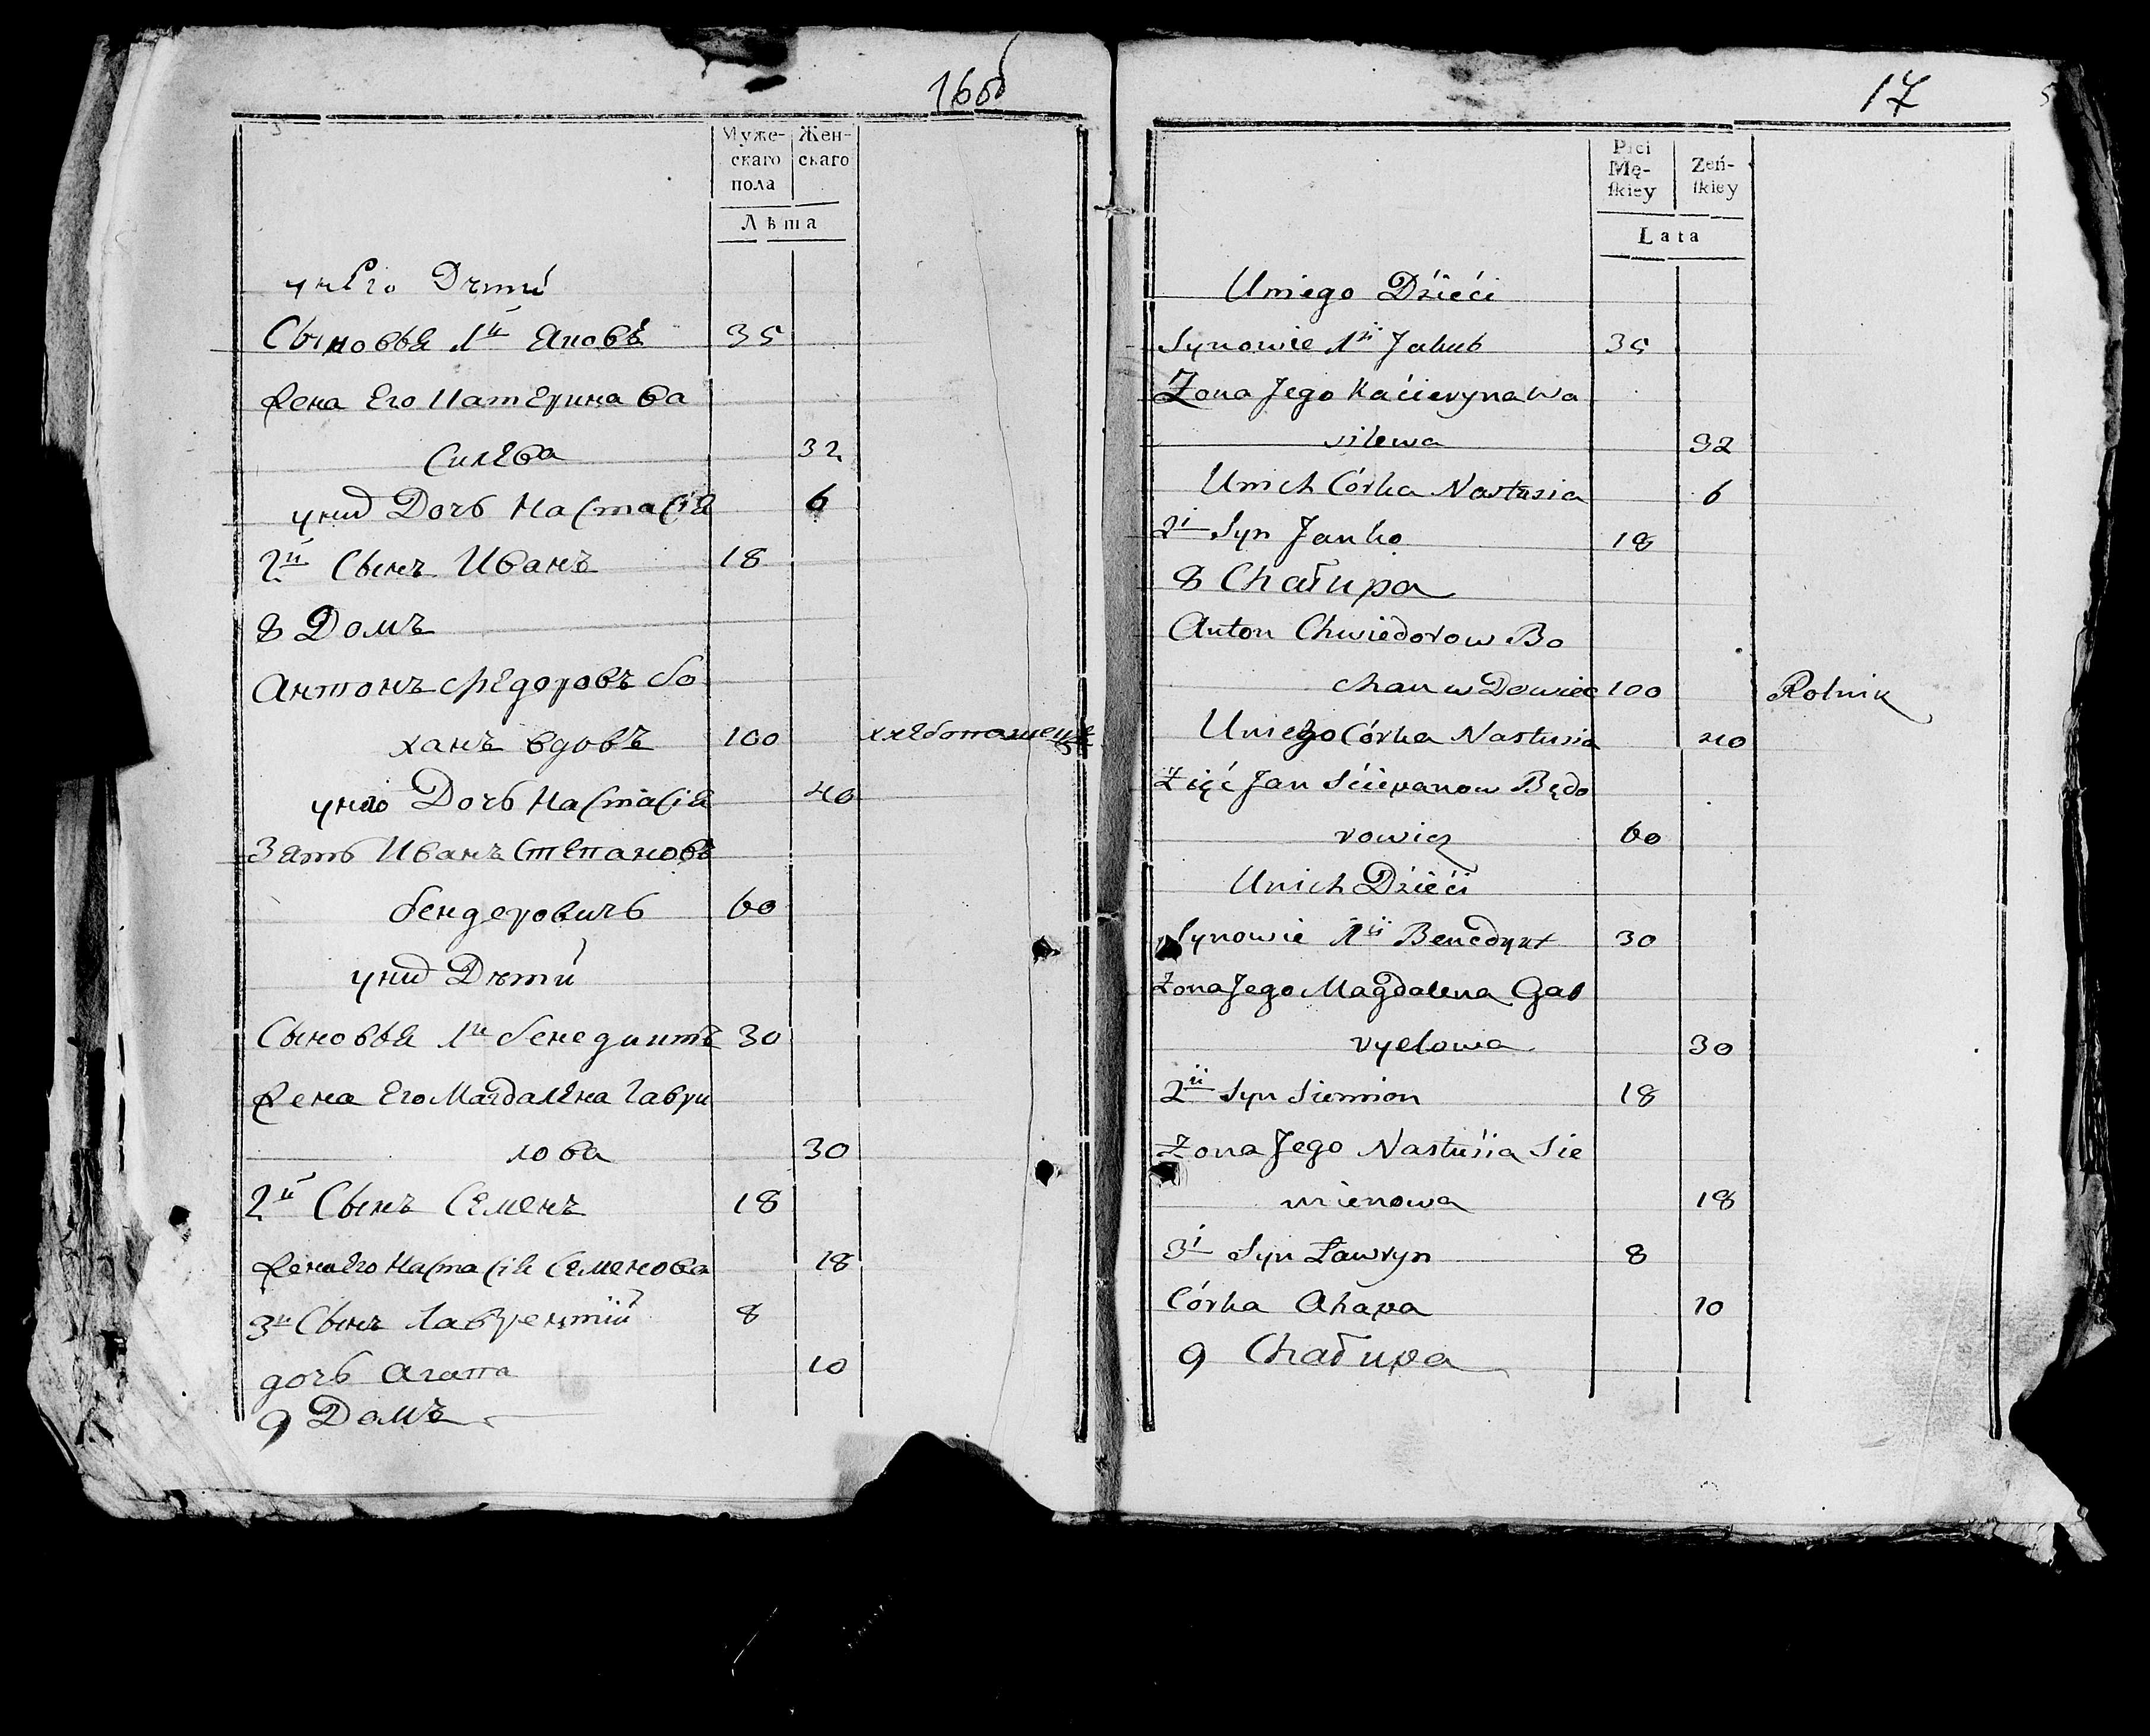 16об
Муже-
скаго
пола
Жен-
скаго
Лѣта
у него Дѣти
Сыновья 1й Яковъ 35
Жена Его Катерина Ва
силева 32
у них Дочь Настасія 6
2й Сынъ Иванъ 18
8 Домъ
Антонъ Федоровъ Бо
ханъ вдовъ 100
у него Дочь Настасія 40
Зять Иванъ Степановъ
Бендеровичь 60
у них Дѣти
Сыновья 1й Бенедиктъ 30
Жена Его Магдалена Гаври
лова 30
2й Сынъ Семенъ 18
Жена Его Настасія Семенова 18
3й Сынъ Лаврентій 8
дочь Агапа 10
9 Домъ
17
Płci
Mę-
ſkiey
Żeń-
ſkiey
Lata
Uniego Dźieći
Synowie 1ii Jakub 35
Żona Jego Kacieryna Wa
silewa 32
Unich Córka Nastusia 6
2i Syn Janko 18
8 Chałupa
Anton Chwiedorow Bo
chan w Dowiec 100 Rolnik
Uniego Córka Nastusia 40
Zięć Jan Sćiepanow Będo
rowicz 60
Unich Dźieći
Synowie 1ii Benedykt 30
Żona Jego Magdalena Gab
ryelowa 30
2ii Syn Siemion 18
Żona Jego Nastusiia Sie
mienowa 18
3i Syn Ławryn 8
Córka Ahapa 10
9 Chałupa